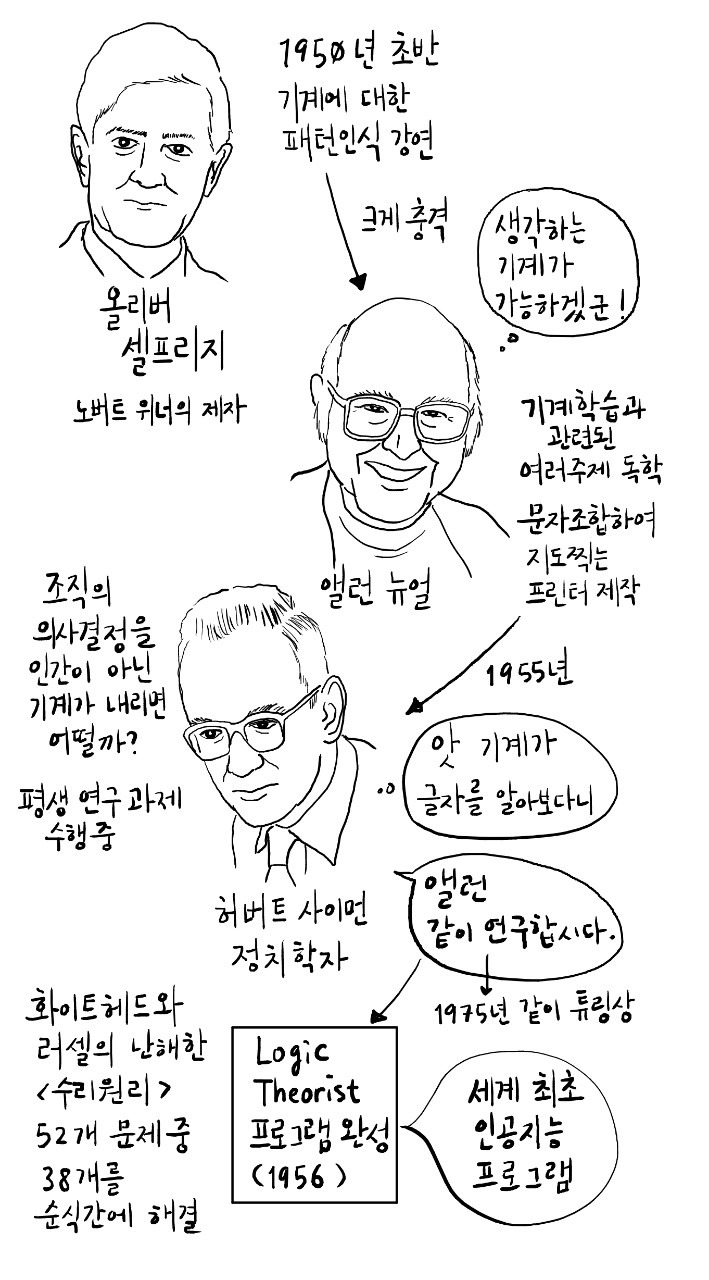 1950년 초반
기계에 대한
패턴인식 강연
크게 충격
올리버
셀프리지
노버트 위너의 제자
생각하는
기계가
가능하겠군!
앨런 뉴얼
기계학습과
관련된
여러주제 독학
문자조합하여
지도찍는
프린터 제작
1955년
조직의
의사결정을
인간이 아닌
기계가 내리면
어떨까?
평생 연구 과제
수행중
앗 기계가
글자를 알아보다니
허버트 사이먼
정치학자
앨런
같이 연구합시다.
1975년 같이 튜링상
화이트헤드와
러셀의 난해한
<수리원리>
52개 문제 중
38개를
순식간에 해결
Logic
Theorist
프로그램 완성
(1956)
세계 최초
인공지능
프로그램